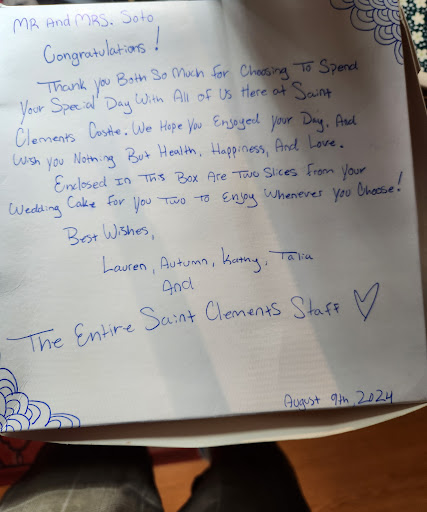 MR And MRS. Soto
Congratulations!
Thank you Both So Much for Choosing To Spend
Your Special Day With All of Us Here at Saint
Clements Castle. We Hope You Enjoyed your Day, And
Wish you Nothing But Health, Happiness, And Love.
Enclosed In This Box Are Two Slices From Your
Wedding Cake for You Two To Enjoy Whenever You Choose!
Best Wishes,
Lauren, Autumn, Kathy, Talia
And
The Entire Saint Clements Staff
August 9th, 2024